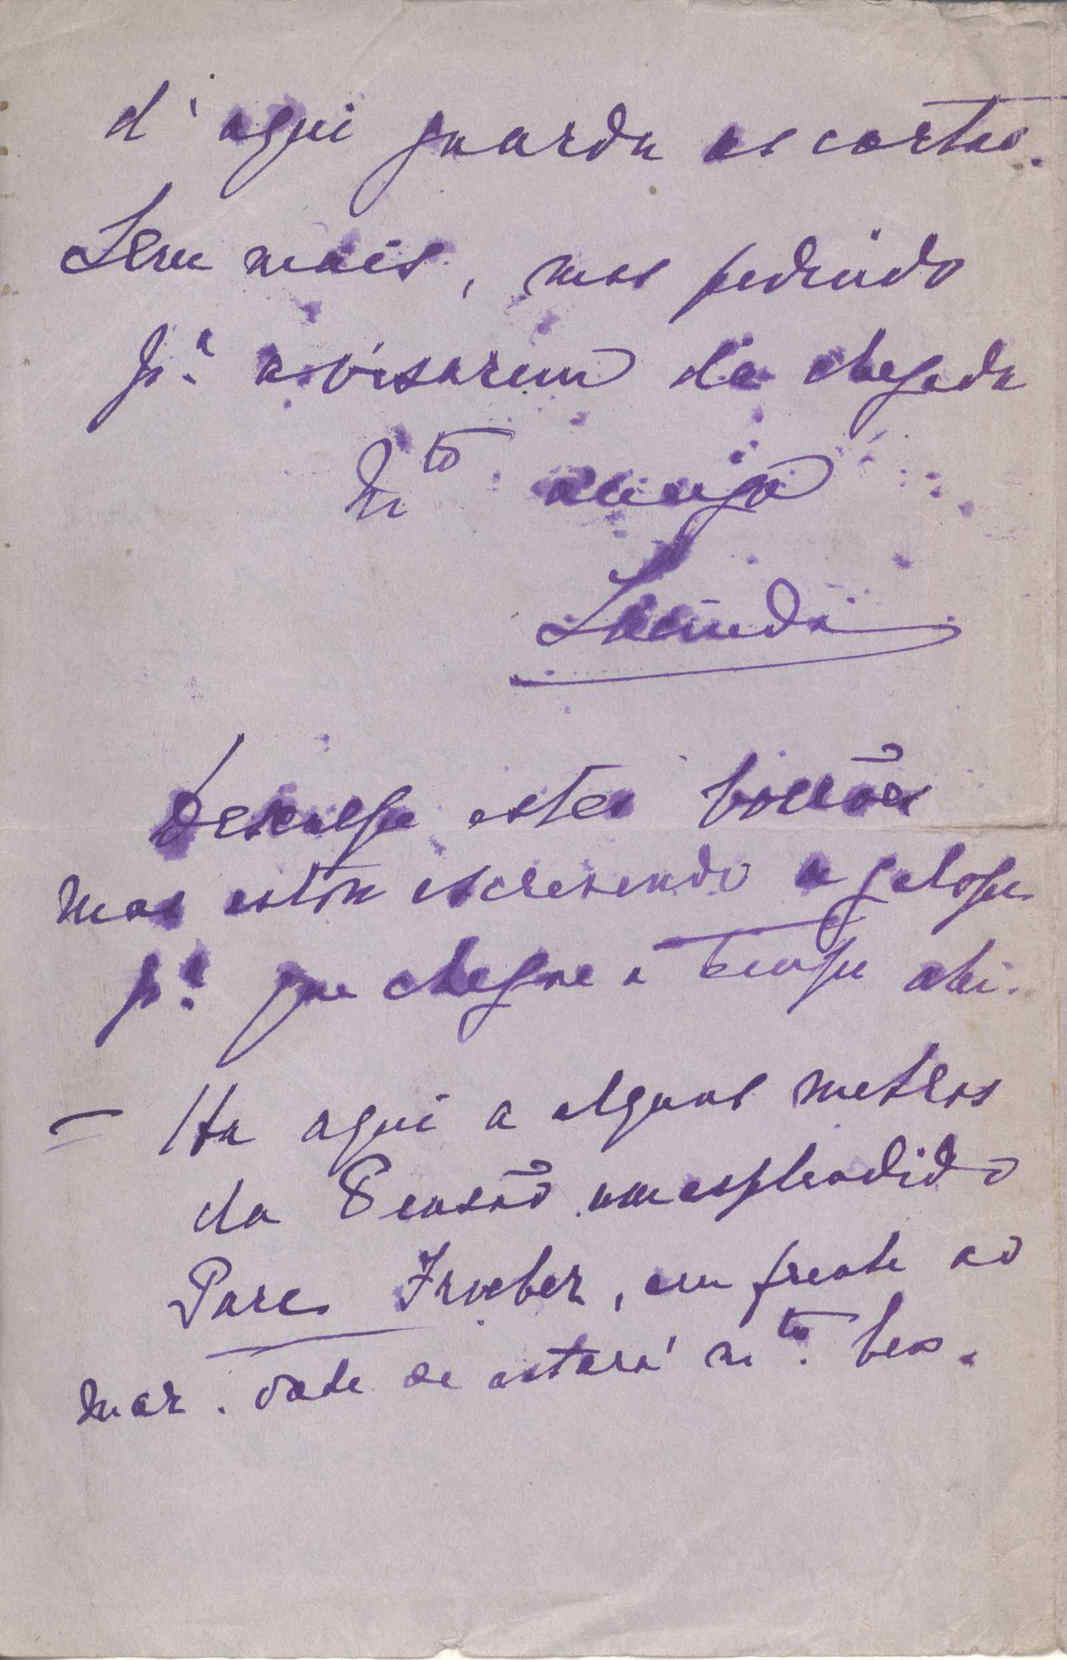 d'aqui guarda as cartas.
Sem mais, mas pedindo
pª avisarem da chegada
Mto amiga
Lucinda
Desculpe estes borrões
mas estou escrevendo a galope
pª que chegue a tempo ahi.
— Ha aqui a alguns metros
da Pensão um esplendido
Parc Froebel, em frente ao
mar. onde se estará mto. bem.